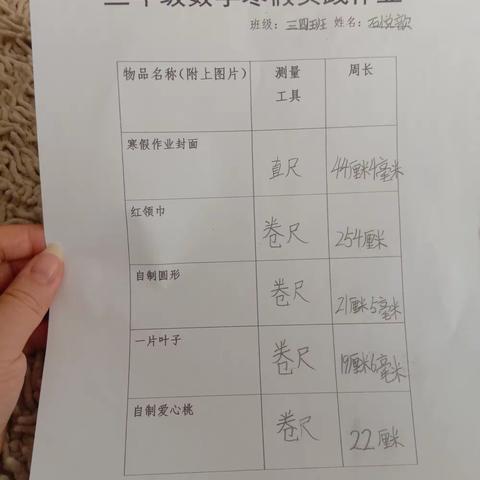 三年级数学寒假实践作业
班级：三四班 姓名：石悦歆
物品名称（附上图片） 测量工具 周长
寒假作业封面 直尺 44厘米4毫米
红领巾 卷尺 254厘米
自制圆形 卷尺 21厘米5毫米
一片叶子 卷尺 19厘米6毫米
自制爱心桃 卷尺 22厘米